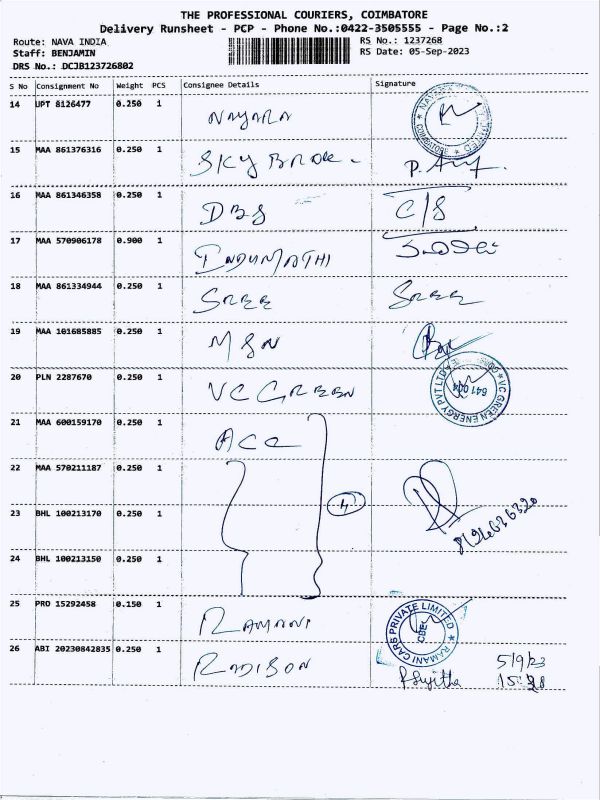 THE PROFESSIONAL COURIERS, COIMBATORE
Delivery Runsheet - PCP - Phone No.:0422-3505555 - Page No.:2
Route: NAVA INDIA
Staff: BENJAMIN
DRS No.: DCJB123726802
RS No.: 1237268
RS Date: 05-Sep-2023
S No Consignment No Weight PCS Consignee Details Signature
14 UPT 8126477 0.250 1 NAYARA
15 MAA 861376316 0.250 1 SKY
16 MAA 861346358 0.250 1 DBS C/S
17 MAA 570906178 0.900 1 INDUMATHI
18 MAA 861334944 0.250 1 SREE SREE
19 MAA 101685885 0.250 1 MSN
20 PLN 2287670 0.250 1 VC GREEN
VC GREEN ENERGY PVT LTD
21 MAA 600159170 0.250 1 ACC
22 MAA 570211187 0.250 1
23 BHL 100213170 0.250 1 4
24 BHL 100213150 0.250 1
25 PRO 15292458 0.150 1 RAMANI
RAMANI CARS PRIVATE LIMITED
CBE
26 ABI 20230842835 0.250 1 RADISON
P Sujitha 5/9/23